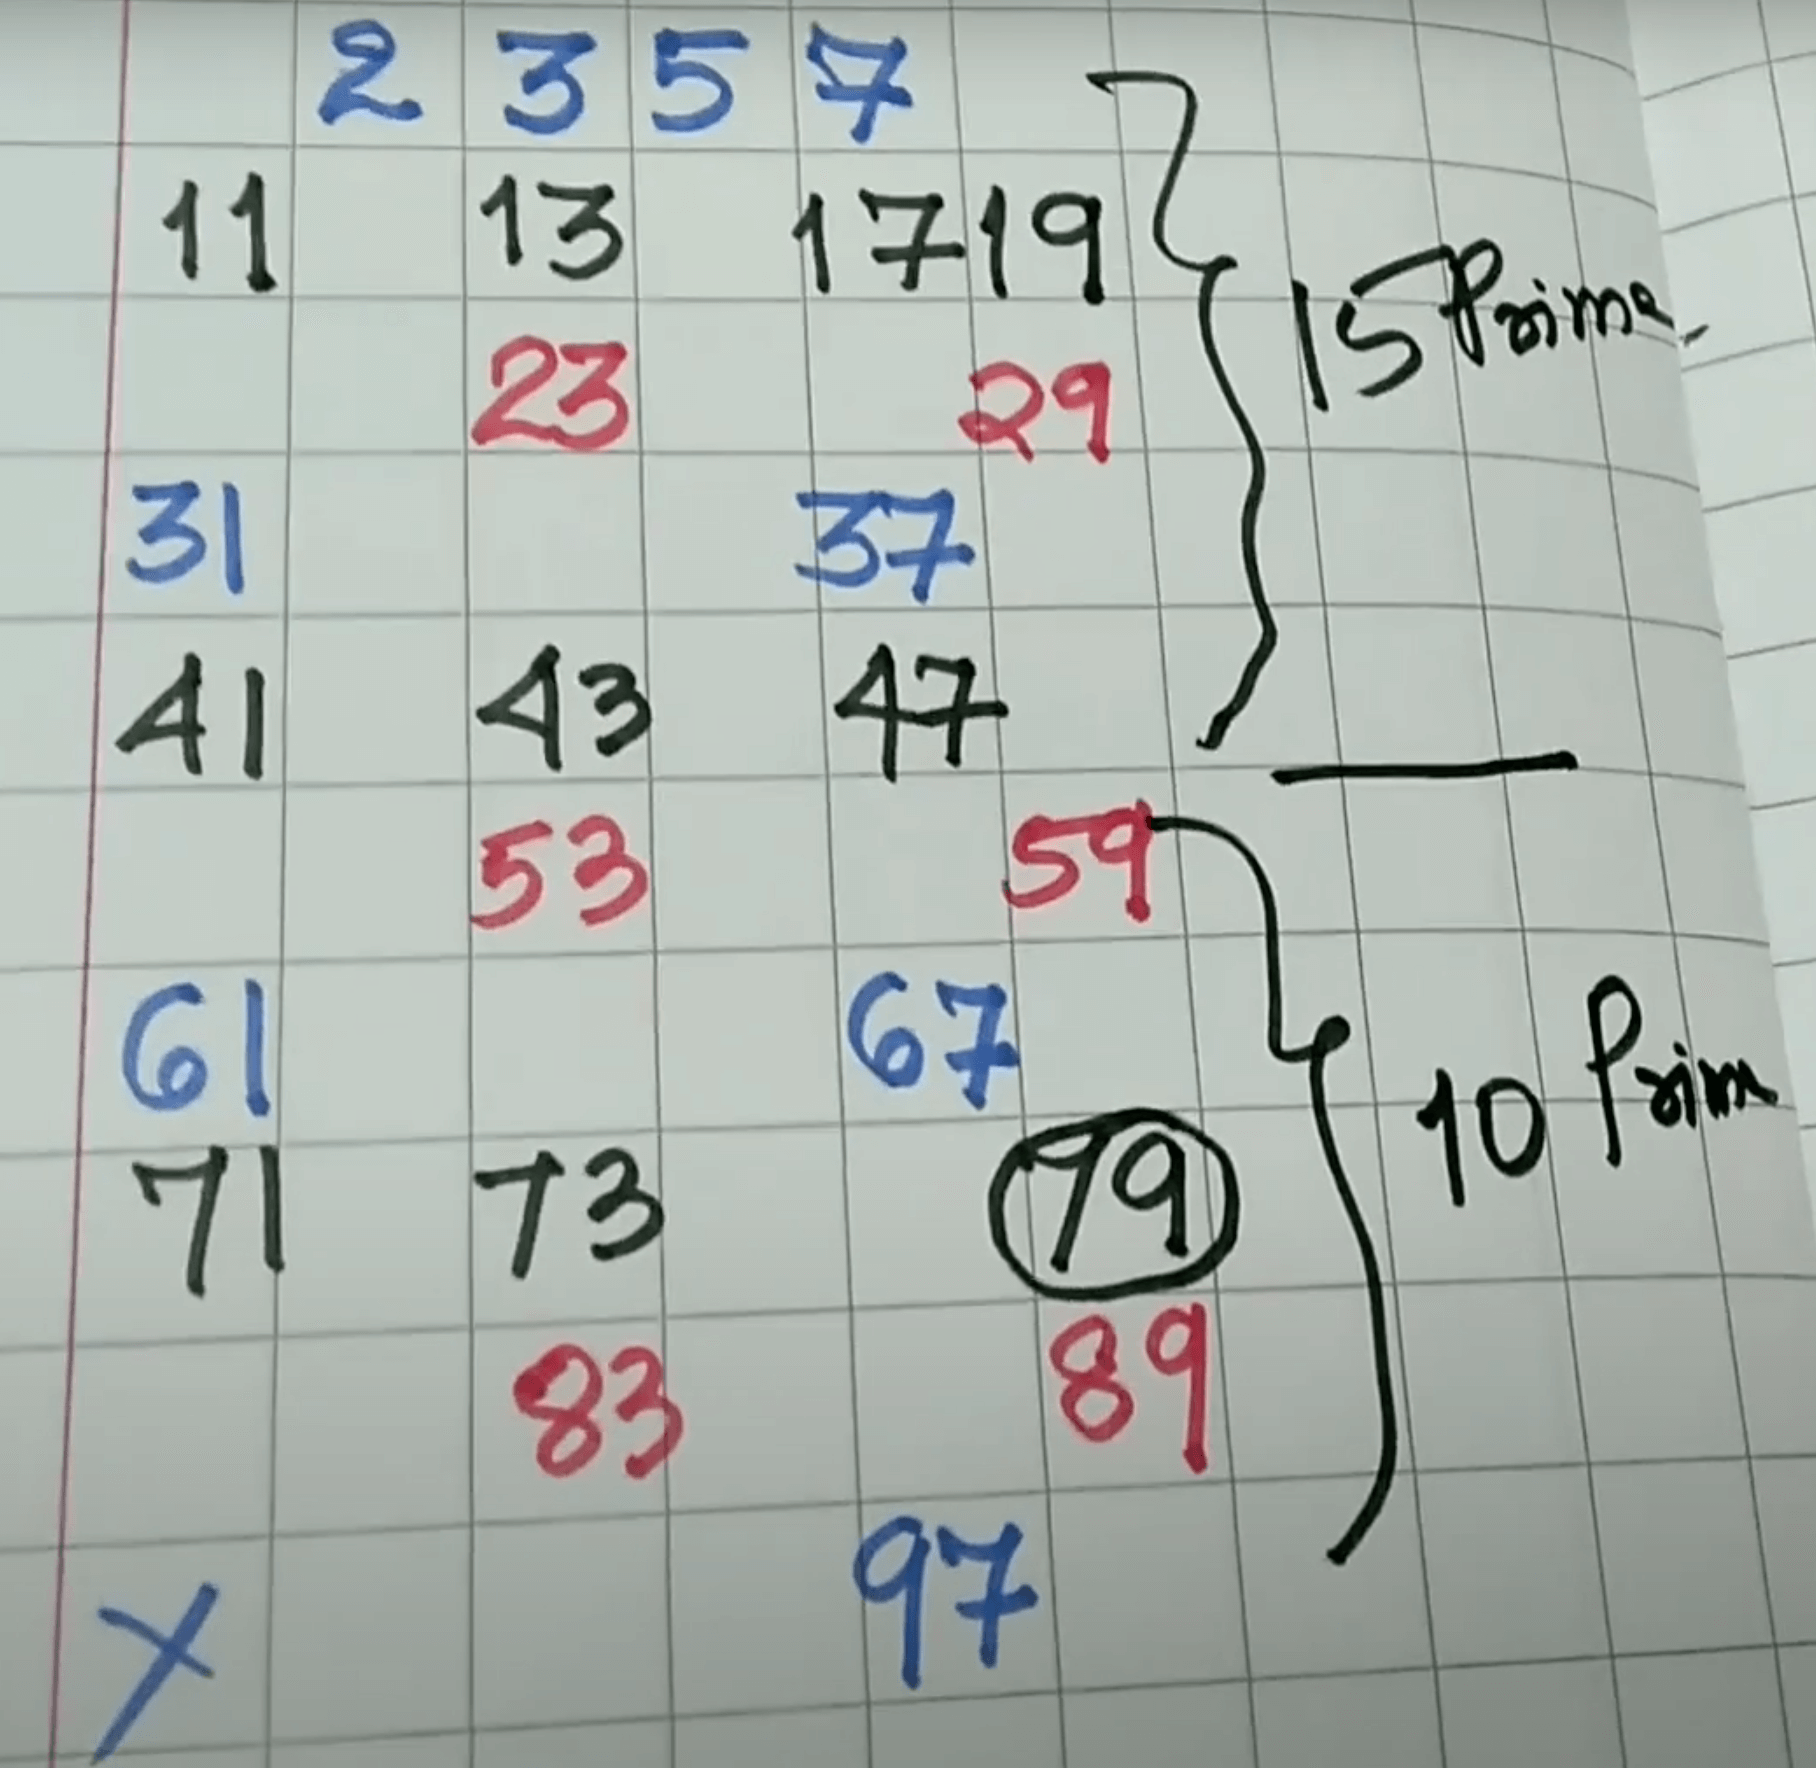 2 3 5 7
11 13 17 19
15 Prime
23 29
31 37
41 43 47
53 59
61 67
10 Prim
71 73 79
83 89
X 97